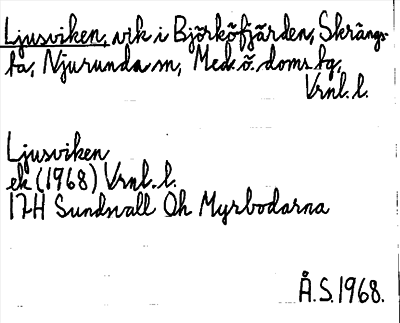 Ljusviken, vik i Björköfjärden, Skrängs-
ta, Njurunda sn, Med. ö. doms. tg,
Vrnl. l.
Ljusviken
ek (1968) Vrnl. l.
17H Sundsvall Öh Myrbodarna
Å.S. 1968.